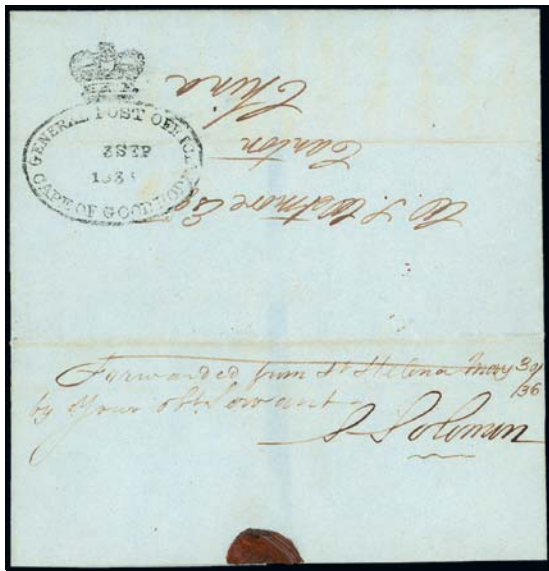 GENERAL POST OFFICE
3 SEP
CAPE OF GOOD HOPE
W. S. Wetmore Esq
Canton
China
Forwarded from St Helena May 30/36
by Your Obt Servant
S Solomon